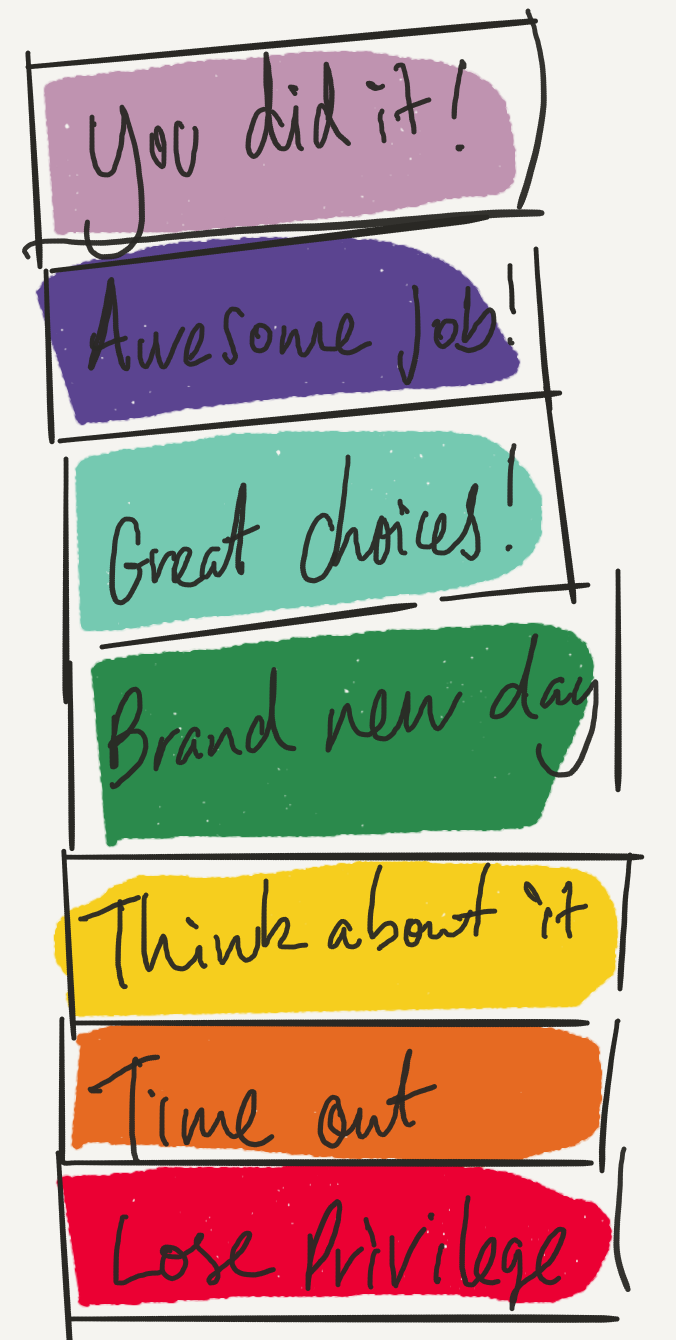 You did it!
Awesome job!
Great choices!
Brand new day
Think about it
Time out
Lose Privilege